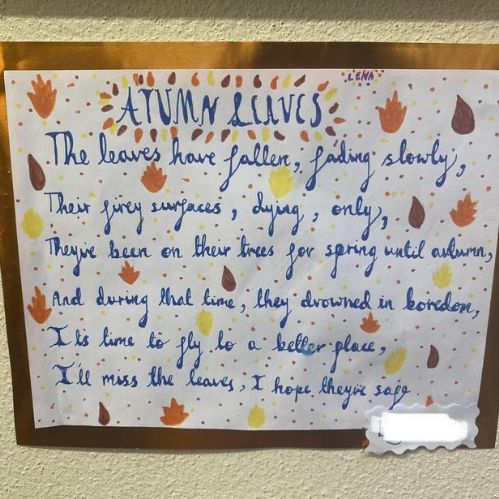 L'ENA
ATUMN LEAVES
The leaves have fallen, fading slowly,
Their firey surfaces, dying, only,
They've been on their trees for spring until autumn,
And during that time, they drowned in boredom,
It's time to fly to a better place,
I'll miss the leaves, I hope they're safe